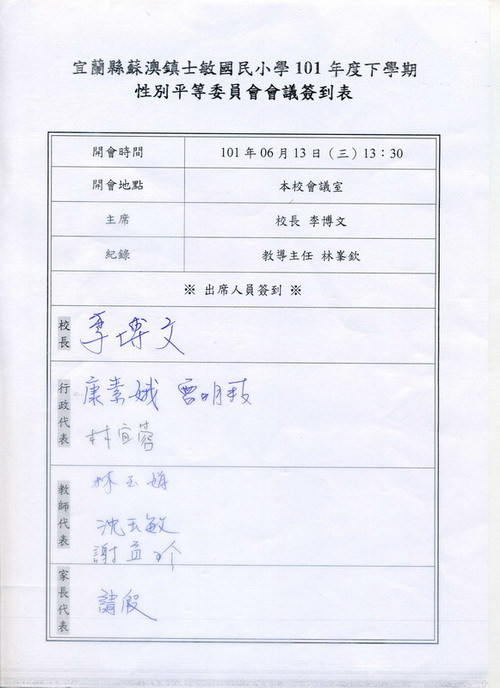 宜蘭縣蘇澳鎮士敏國民小學101年度下學期
性別平等委員會會議簽到表
開會時間 101年06月13日（三）13：30
開會地點 本校會議室
主席 校長 李博文
紀錄 教導主任 林峯欽
※ 出席人員簽到 ※
校長 李博文
行政代表 康素娥 曾明枝
林宜蓉
教師代表 林玉梅
沈玉敏
謝孟
家長代表 請假